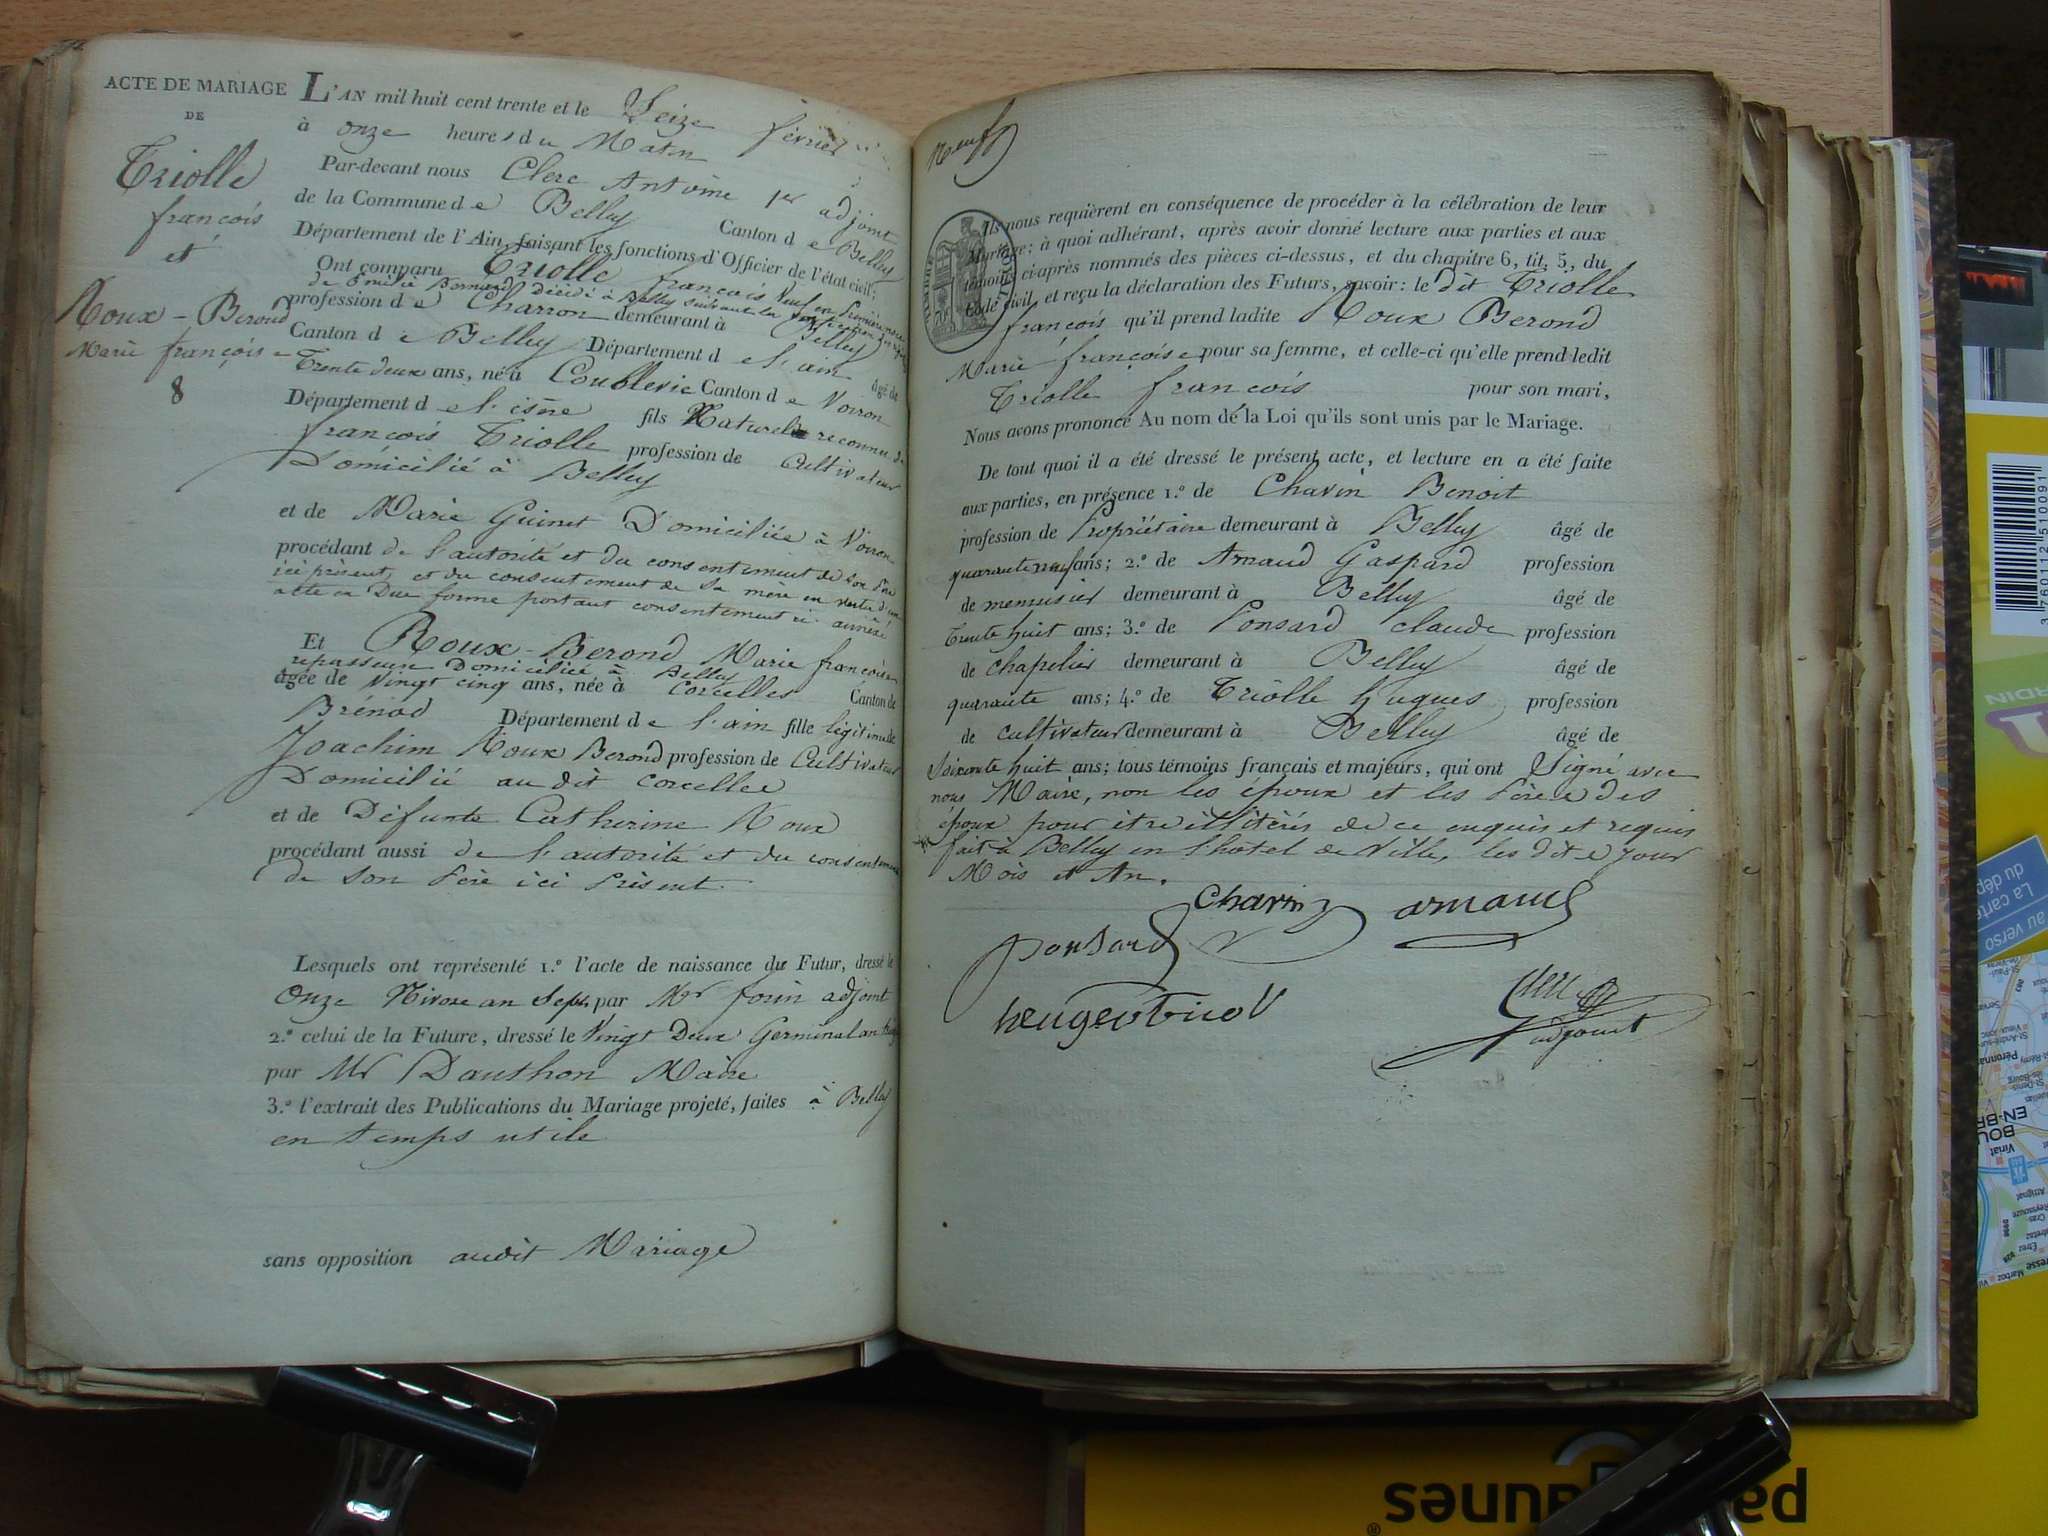 ACTE DE MARIAGE
DE
Triolle
françois
et
Roux-Berond
Marie françoise
8
L'AN mil huit cent trente et le Seize février
à onze heures du Matin
Par-devant nous Clerc Antoine 1er adjoint
de la Commune de Belley Canton de Belley
Département de l'Ain, faisant les fonctions d'Officier de l'état civil;
Ont comparu Triolle françois Veuf en Première noce
de Bernard décidé à Belley suivant la
profession de Charron demeurant à Belley
Canton de Belley Département de l'ain âgé de
Trente deux ans, né à Coublevie Canton de Voiron
Département de l'isère fils Naturel reconnu de
françois Triolle profession de Cultivateur
Domicilié à Belley
et de Marie Guinet Domiciliée à Voiron
procédant de l'autorité et du consentement de son Père
ici présent, et du consentement de sa mère en vertu d'un
acte en Due forme portant consentement ci annéxé
Et Roux-Berond Marie françoise
repasseuse Domiciliée à Belley
âgée de Vingt cinq ans, née à Corcelles Canton de
Brénod Département de l'ain fille légitime de
Joachim Roux Berond profession de Cultivateur
Domicilié au dit Corcelles
et de Défunte Catherine Roux
procédant aussi de l'autorité et du consentement
de son Père ici Présent.
Lesquels ont représenté 1.º l'acte de naissance du Futur, dressé le
Onze Nivose an Sept, par Mr adjoint
2.º celui de la Future, dressé le Vingt Deux Germinal an
par Mr Dauthon Maire
3.º l'extrait des Publications du Mariage projeté, faites à Belley
en temps utile
sans opposition audit Mariage
Neuf
TIMBRE
Ils nous requièrent en conséquence de procéder à la célébration de leur
Mariage; à quoi adhérant, après avoir donné lecture aux parties et aux
témoins ci-après nommés des pièces ci-dessus, et du chapitre 6, tit. 5, du
Code civil et reçu la déclaration des Futurs, savoir: le dit Triolle
françois qu'il prend ladite Roux Berond
Marie françoise pour sa femme, et celle-ci qu'elle prend ledit
Triolle françois pour son mari,
Nous avons prononcé Au nom de la Loi qu'ils sont unis par le Mariage.
De tout quoi il a été dressé le présent acte, et lecture en a été faite
aux parties, en présence 1.º de Chavin Benoit
profession de Propriétaire demeurant à Belley âgé de
quarante neuf ans; 2.º de Arnaud Gaspard profession
de menuisier demeurant à Belley âgé de
Trente huit ans; 3.º de Ponsard claude profession
de chapelier demeurant à Belley âgé de
quarante ans; 4.º de Triolle hugues profession
de cultivateur demeurant à Belley âgé de
Soixante huit ans; tous témoins français et majeurs, qui ont Signé avec
nous Maire, non les époux et les Pères des
époux pour être illitérés de ce enquis et requis
fait à Belley en l'hôtel de Ville, les dits Jour
Mois et An.
Chavin arnaud
ponsard
heugeotriol
Clerc
adjoint
3 760112 510091
La carte
du dép
au verso
EN-BR
BOU
Vinat
Péronna
Attignat
Cras
Etrez
Marboz
pa aunes
®